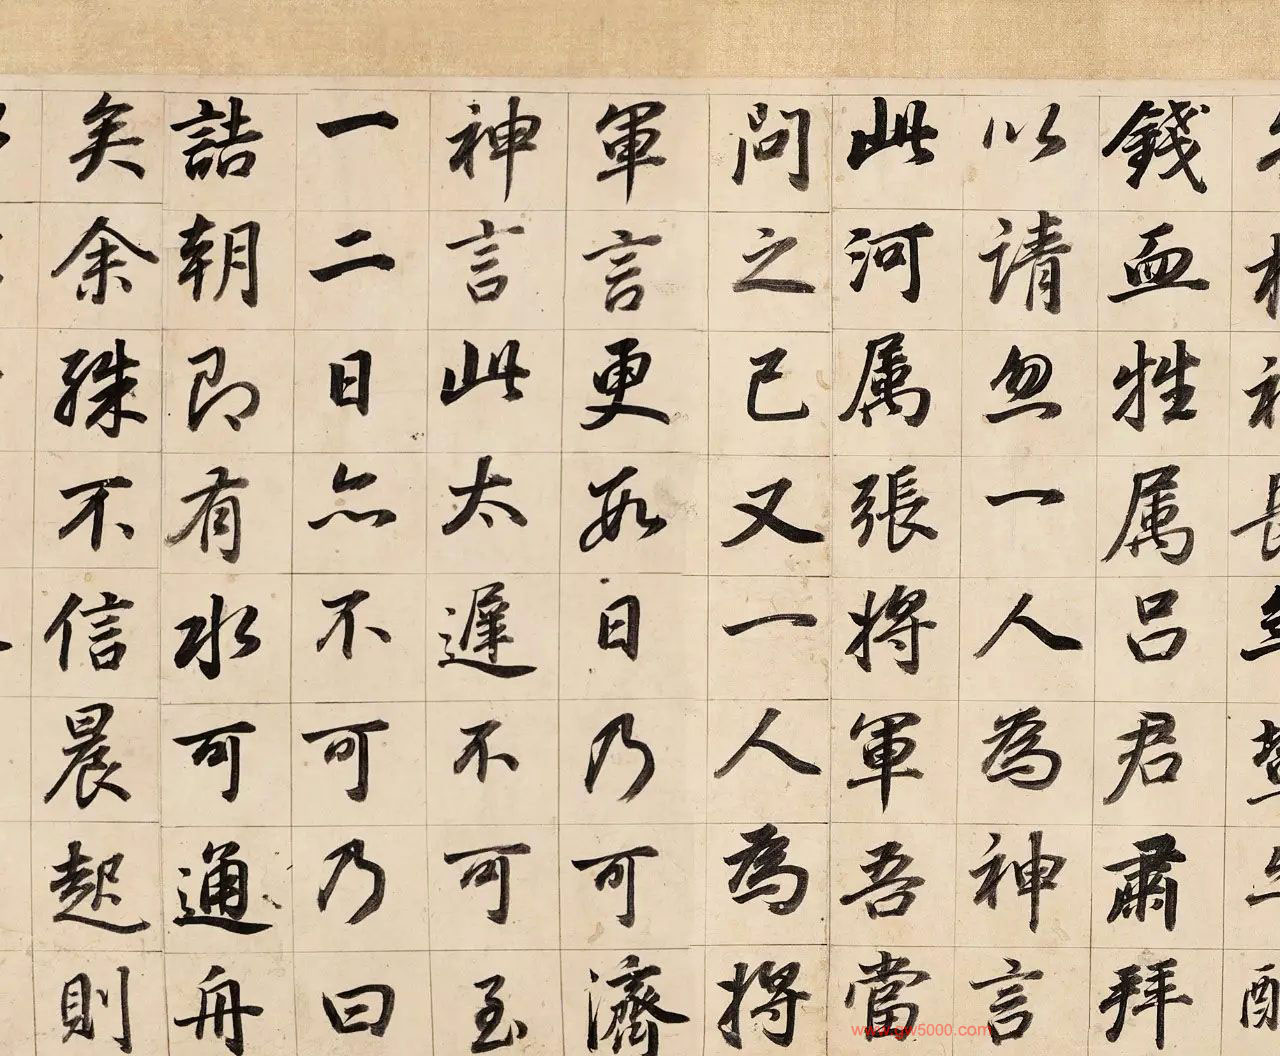 錢血牲属吕君肅拜
以请忽一人為神言
此河属張將軍吾當
問之已又一人為將
軍言更數日乃可濟
神言此太遲不可至
一二日亦不可乃曰
詰朝即有水可通舟
矣余殊不信晨起則
www.gw5000.com